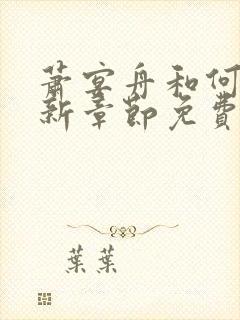 萧宴舟和何
新章节免费
葉葉